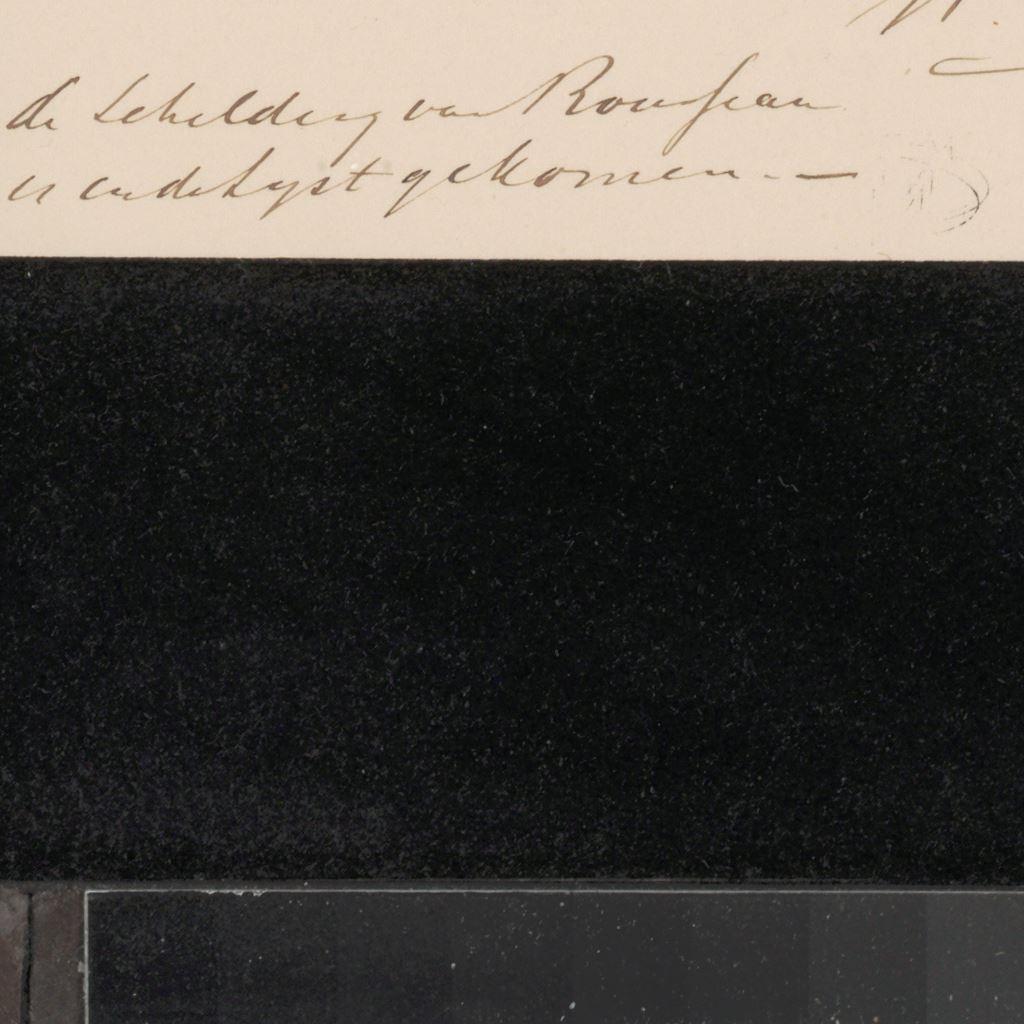 de Schilderij van Rousseau
is endelyst gekomen. —